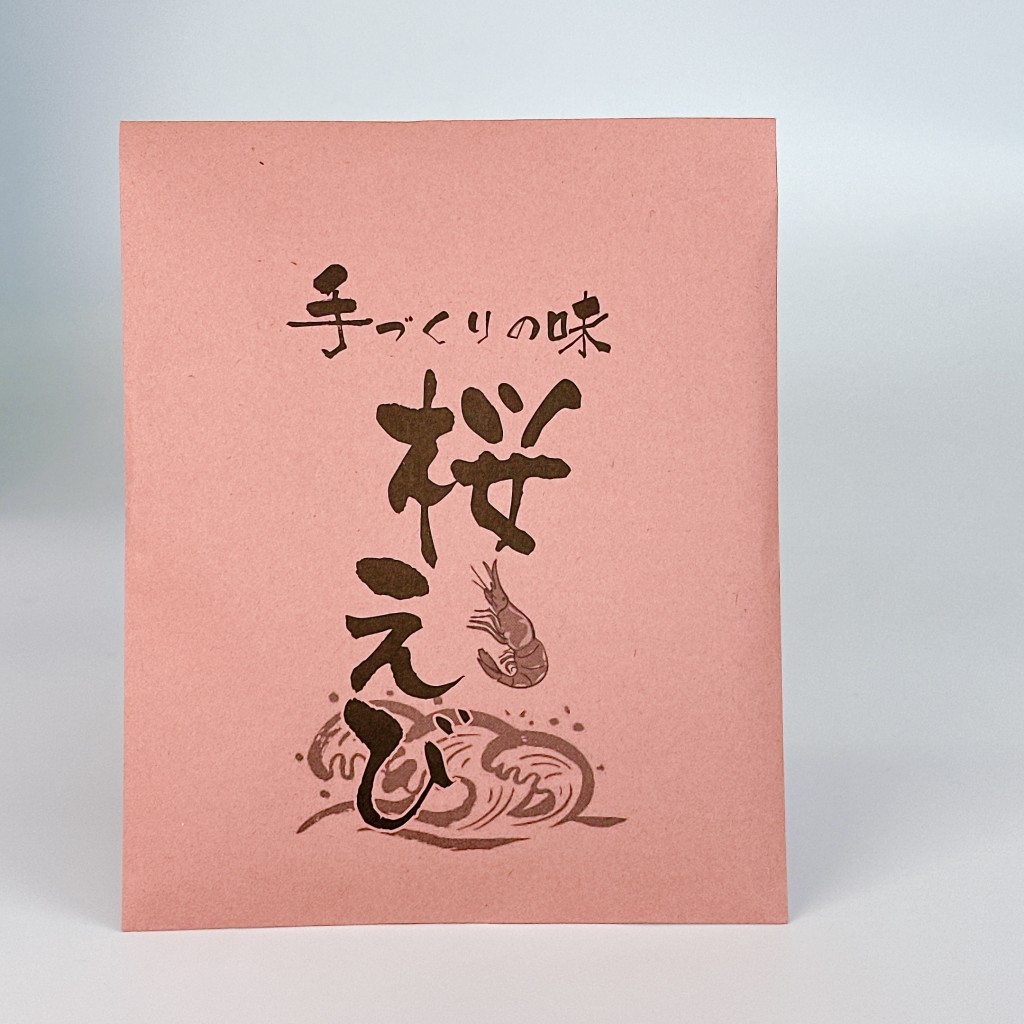 手づくりの味
桜えび